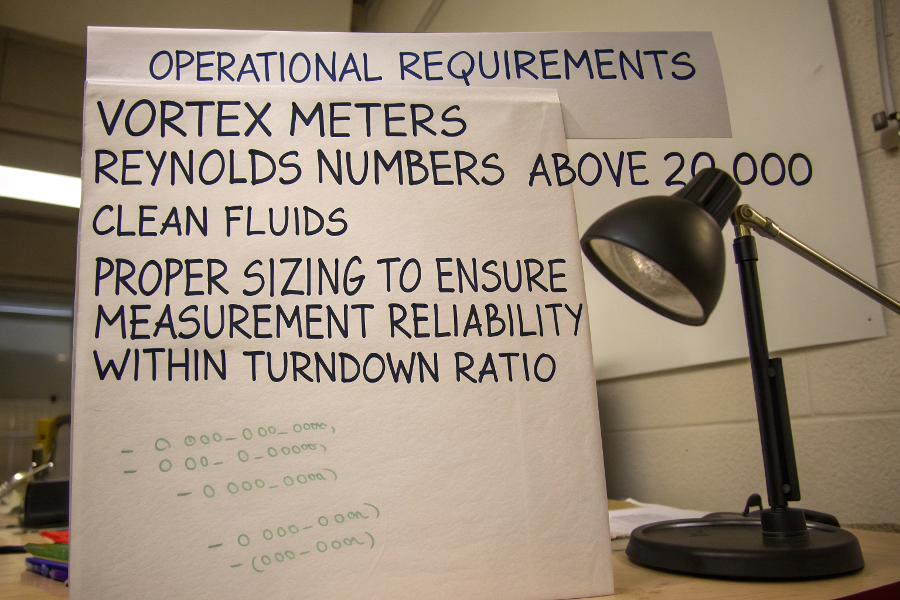 OPERATIONAL REQUIREMENTS
VORTEX METERS
REYNOLDS NUMBERS ABOVE 20,000
CLEAN FLUIDS
PROPER SIZING TO ENSURE
MEASUREMENT RELIABILITY
WITHIN TURNDOWN RATIO